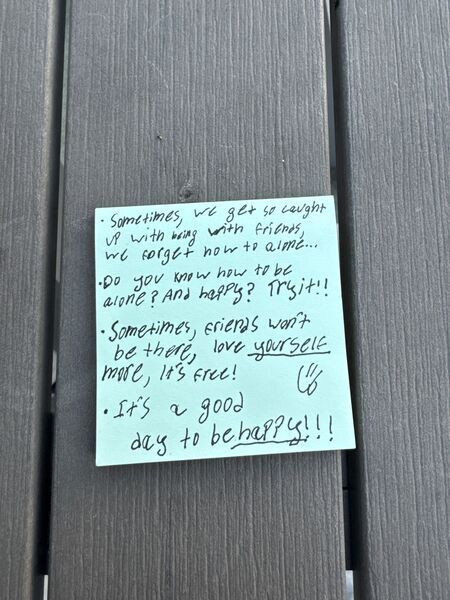 · Sometimes, we get so caught
up with being with friends,
we forget how to alone...
· Do you know how to be
alone? And happy? Try it!!
· Sometimes, friends won't
be there, love yourself
more, It's Free!
· It's a good
day to be happy!!!